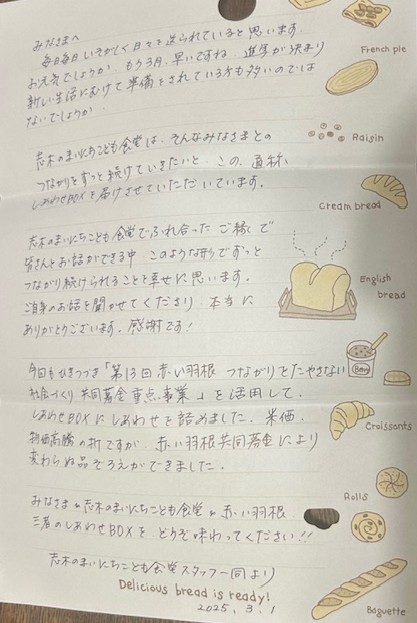 みなさまへ
毎日毎日いそがしく日々を送られていると思います。
お元気でしょうか もう3月、早いですね 進路が決まり
French pie
新しい生活にむけて準備をされている方も多いのでは
ないでしょうか
Raisin
志木のまいにちこども食堂は、そんなみなさまとの
つながりをずっと続けていきたいと、この、直材
しあわせBOXを届けさせていただいています。
Cream bread
志木のまいにちこども食堂でふれ合ったご縁で
皆さんとお話ができる中 このような形でずっと
つながり続けられることを幸せに思います。
English
bread
ご自身のお話を聞かせてくださり 本当に
ありがとうございます。感謝です!
今回もひきつづき「第13回赤い羽根 つながりをたやさない
社会づくり 共同募金 重点事業」を活用して、
しあわせBOXにしあわせを詰めました。米価、
Croissants
物価高騰の折ですが、赤い羽根共同募金により
変わらぬ品ぞろえができました。
Rolls
みなさま 志木のまいにちこども食堂 赤い羽根
三者のしあわせBOXを どうぞ味わってください!!
志木のまいにちこども食堂スタッフ一同より
Delicious bread is ready!
2025. 3. 1
Baguette